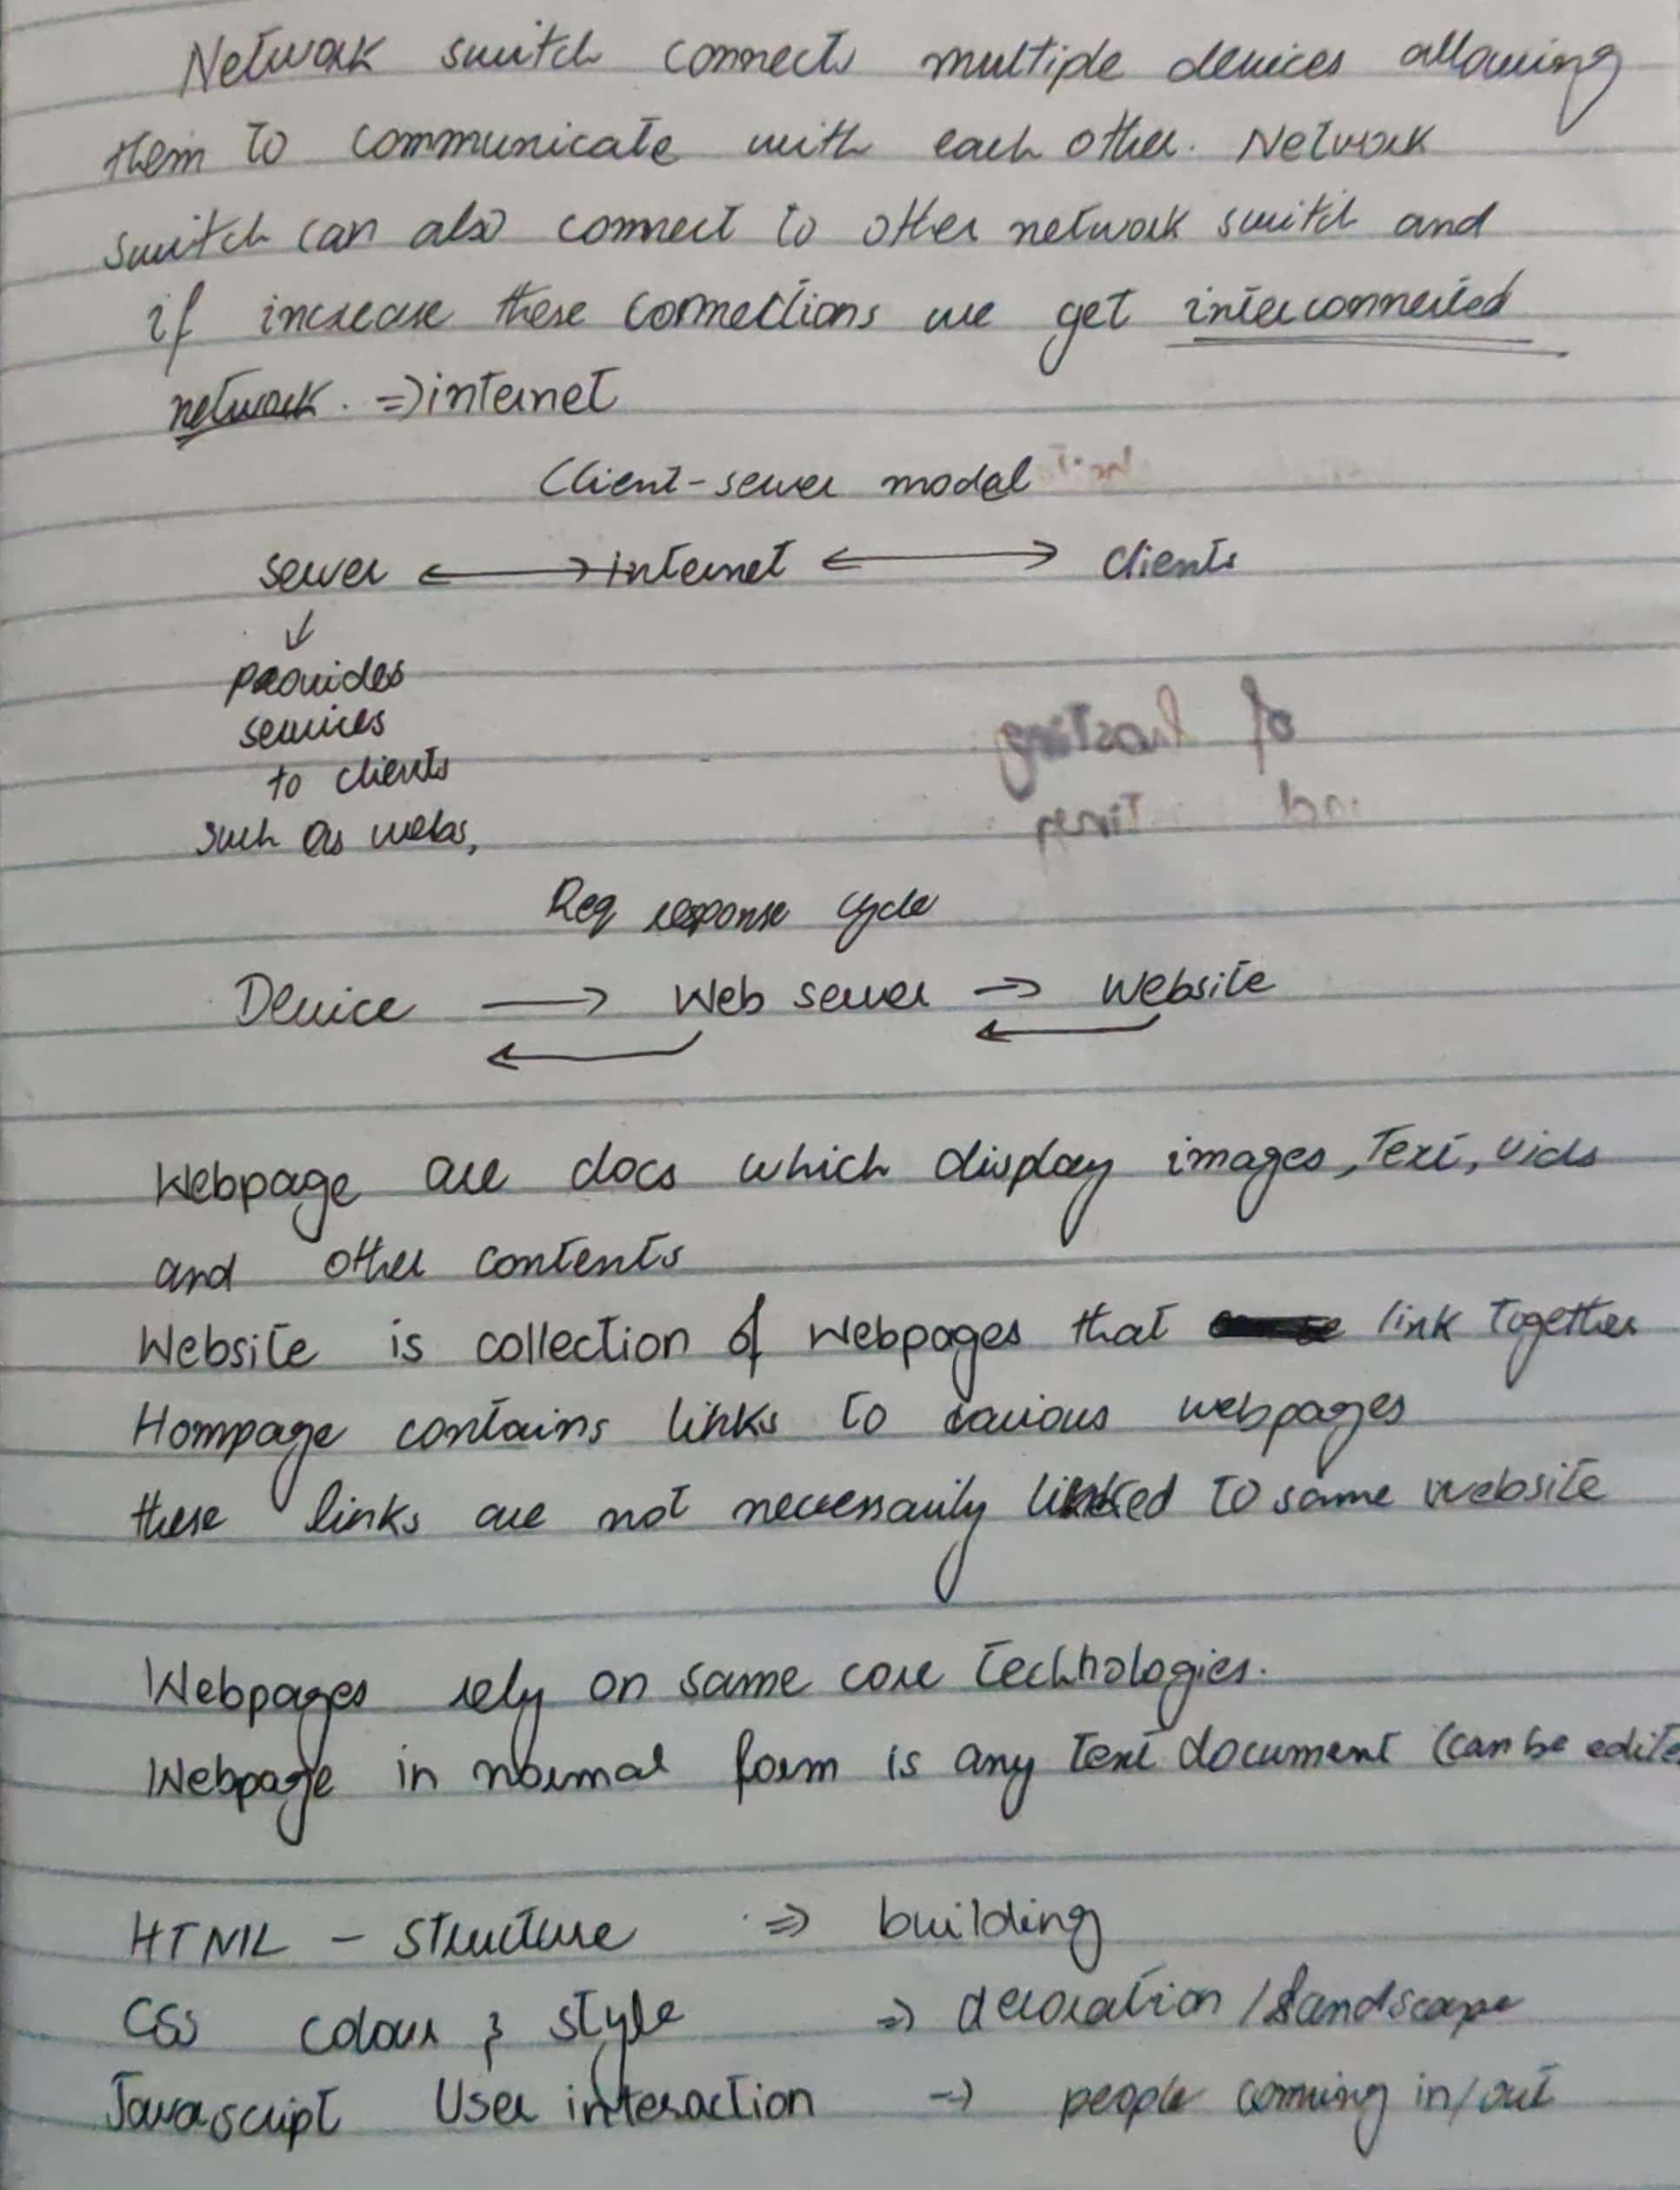 Network switch connects multiple devices allowing
them to communicate with each other. Network
switch can also connect to other network switch and
if increase these connections we get interconnected
network. => internet
Client-server modal
server <-> internet <-> clients
↓
provides
services
to clients
such as webs,
Req response cycle
Device → Web server → website
←  ←
Webpage are docs which display images, Text, vids
and other contents
Website is collection of webpages that link together
Hompage contains links to various webpages
these links are not necessarily linked to same website
Webpages rely on same core technologies.
Webpage in normal form is any text document (can be edite
HTML - structure => building
CSS colour & style => decoration / landscape
Javascript User interaction → people coming in/out